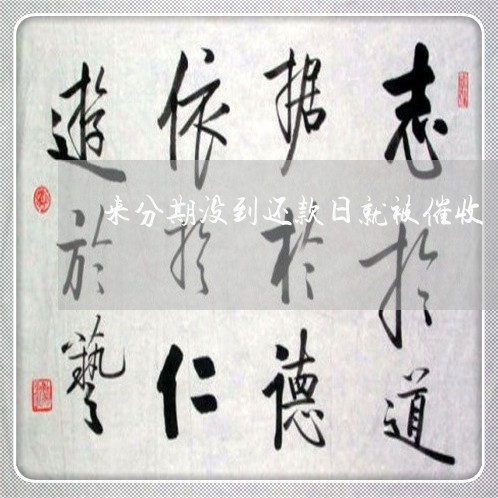 志於道
据於德
依於仁
遊於藝
来分期没到还款日就被催收